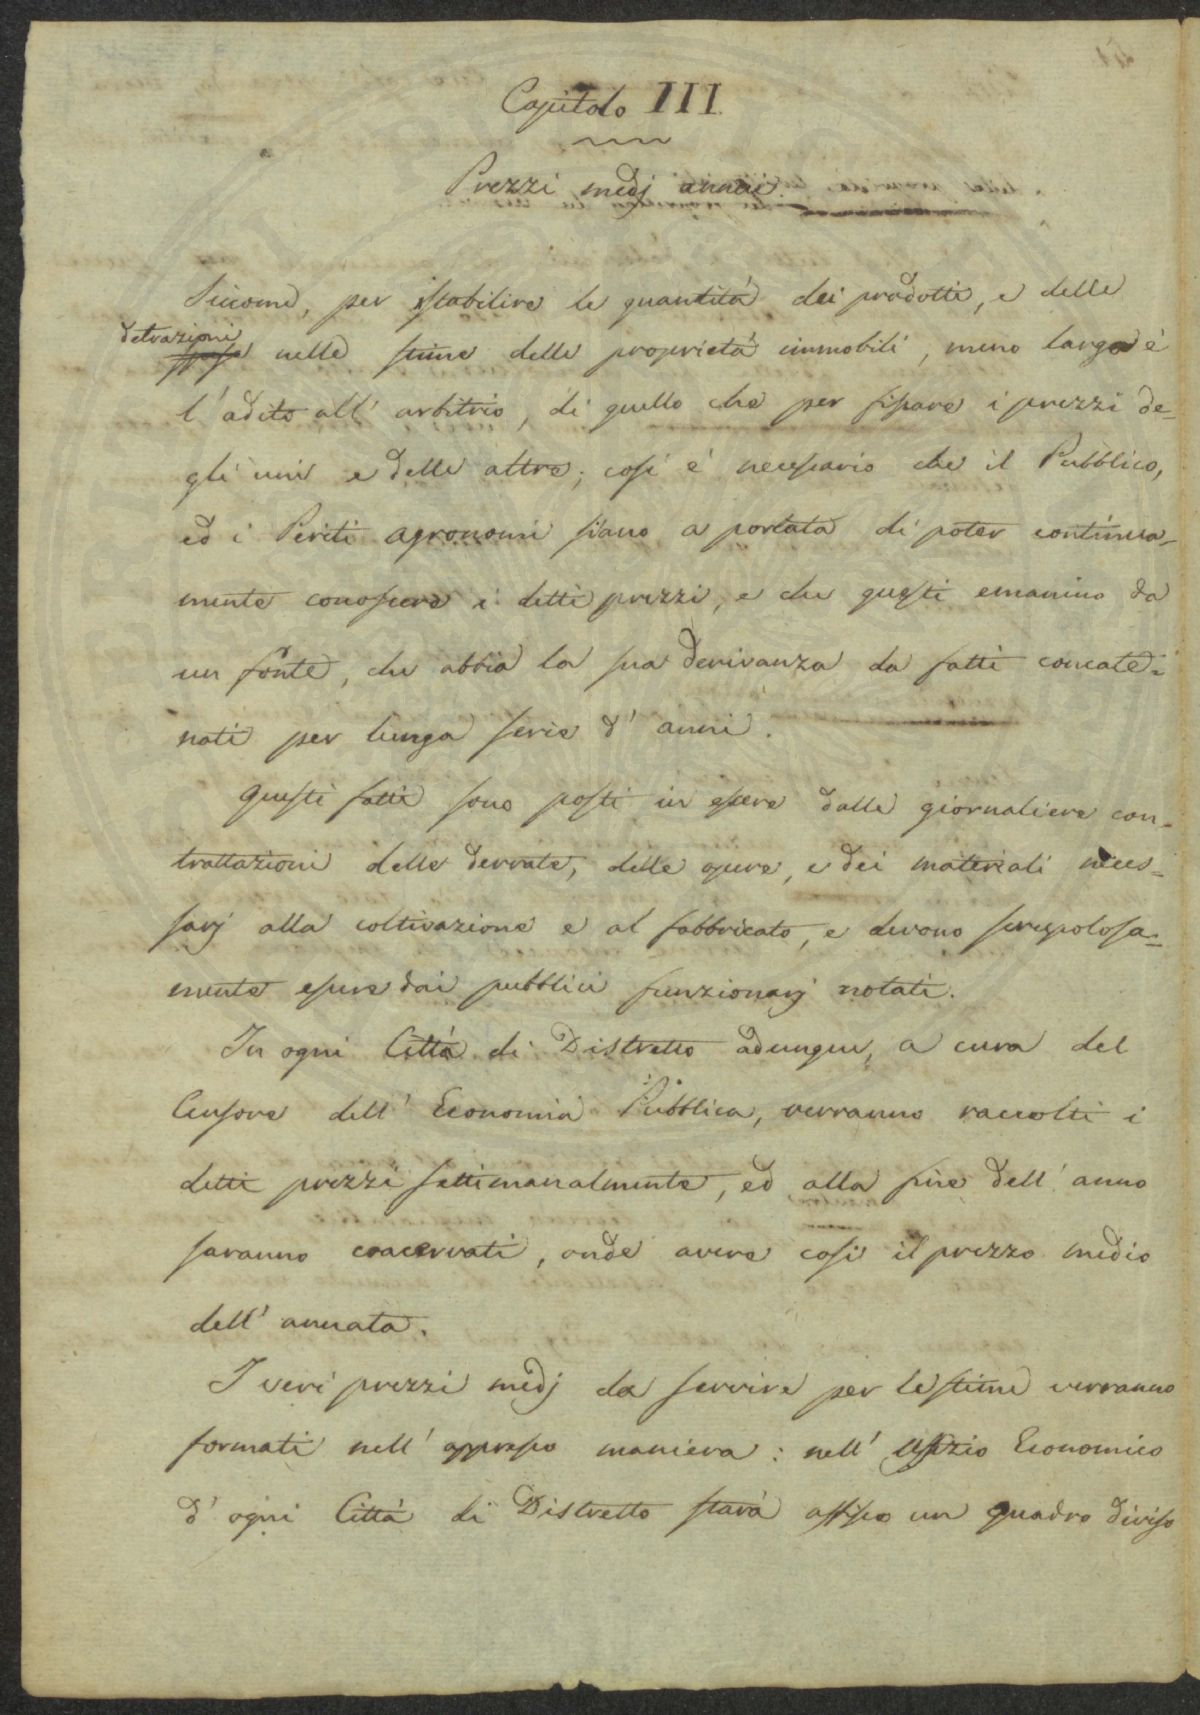 Capitolo III.
Prezzi medj annui.
Siccome, per istabilire le quantità dei prodotti, e delle
detrazioni
spese nelle stime delle proprietà immobili, meno largo è
l'adito all' arbitrio, di quello che per fissare i prezzi de-
gli uni e delle altre; così è necessario che il Pubblico,
ed i Periti agronomi siano a portata di poter continua-
mente conoscere i detti prezzi, e che questi emanino da
un fonte, che abbia la sua derivanza da fatti concate-
nati per lunga serie d' anni.
Questi fatti sono posti in essere dalle giornaliere con-
trattazioni delle derrate, delle opere, e dei materiali neces-
sarj alla coltivazione e al fabbricato, e devono scrupolosa-
mente essere dai pubblici funzionarj notati.
In ogni Città di Distretto adunque, a cura del
Censore dell' Economia Pubblica, verranno raccolti i
detti prezzi settimanalmente, ed alla fine dell' anno
saranno coacervati, onde avere così il prezzo medio
dell' annata.
I veri prezzi medj da servire per le stime verranno
formati nell' appresso maniera: nell' Uffizio Economico
d' ogni Città di Distretto starà affisso un quadro diviso